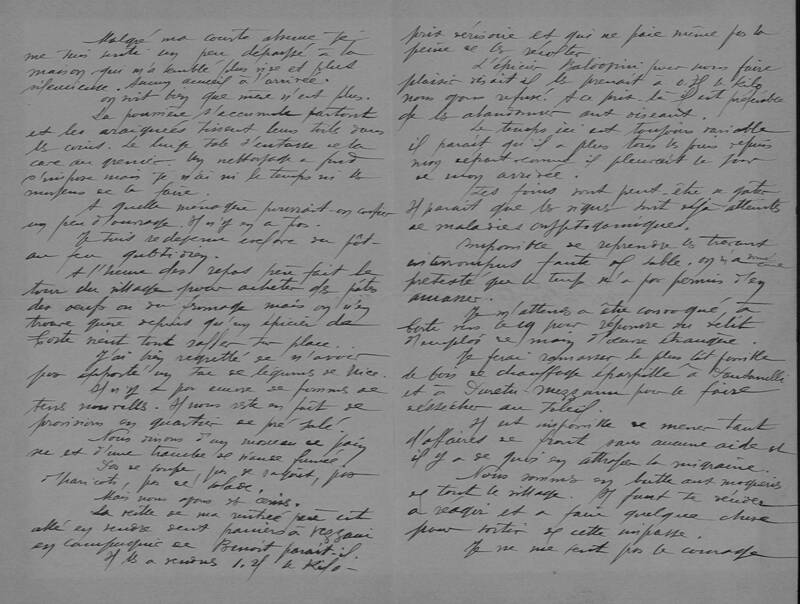 Malgré ma courte absence je
me suis senti un peu dépaysé à la
maison qui m'a semblé plus vide et plus
silencieuse. Aucun accueil à l'arrivée.
On voit bien que mère n'est plus.
La poussière s'accumule partout
et les araignées tissent leurs toile dans
les coins. Le linge sale s'entasse de la
cave au grenier. Un nettoyage à fond
s'impose mais je n'ai ni le temps ni les
moyens de le faire.
A quelle ménagère pourrait-on confier
un peu d'ouvrage. Il n'y en a pas.
Je suis redevenu esclave du pot-
au-feu quotidien.
A l'heure des repas père fait le
tour du village pour acheter des pâtes
des oeufs ou du fromage mais on n'en
trouve guère depuis qu'un épicier de
Corte vient tout rafler sur place.
J'ai bien regretté de n'avoir
pas apporté un sac de légumes de Nice.
Il n'y a pas encore de pommes de
terre nouvelles. Il nous reste en fait de
provisions un quartier de pré salé.
Nous vivons d'un morceau de pain
sec et d'une tranche de viande fumée
Pas de soupe, pas de ragoût, pas
d'haricots, pas de salade.
Mais nous avons des cerises.
La veille de ma rentrée père est
allé en vendre deux paniers à Vezzani
en compagnie de Benoît parait-il.
Il les a vendus 1.25 le kilo
prix dérisoire et qui ne paie même pas la
peine de les récolter
L'épicier pour nous faire
plaisir disait-il les prenait à le kilo
nous avons refusé. A ce prix-là il est préférable
de les abandonner aux oiseaux.
Le temps ici est toujours variable
il parait qu'il a plu tous les jours depuis
mon départ comme il pleuvait le jour
de mon arrivée.
Les foins sont peut-être se gâter
Il parait que les vignes sont déjà atteintes
de maladies cryptogamiques.
Impossible de reprendre les travaux
interrompus faute de sable. On m'a même
prétexté que le temps n'a pas permis d'en
amasser.
Je m'attends à être convoqué à
Corte vers le 19 pour répondre du délit
d'emploi de main d'oeuvre étrangère.
Je ferai ramasser le plus tôt possible
le bois de chauffage éparpillé à
et à pour le faire
sécher au soleil.
Il est impossible de mener tant
d'affaires de front sans aucune aide et
il y a de quoi en attraper la migraine.
Nous sommes en butte aux moqueries
de tout le village. Il faut te décider
à réagir et à faire quelque chose
pour sortir de cette impasse.
Je ne me sens pas le courage